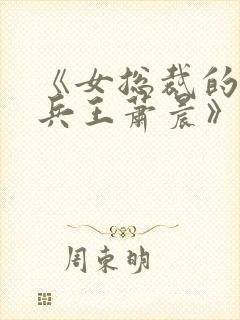 《女总裁的
兵王萧晨》
周东明